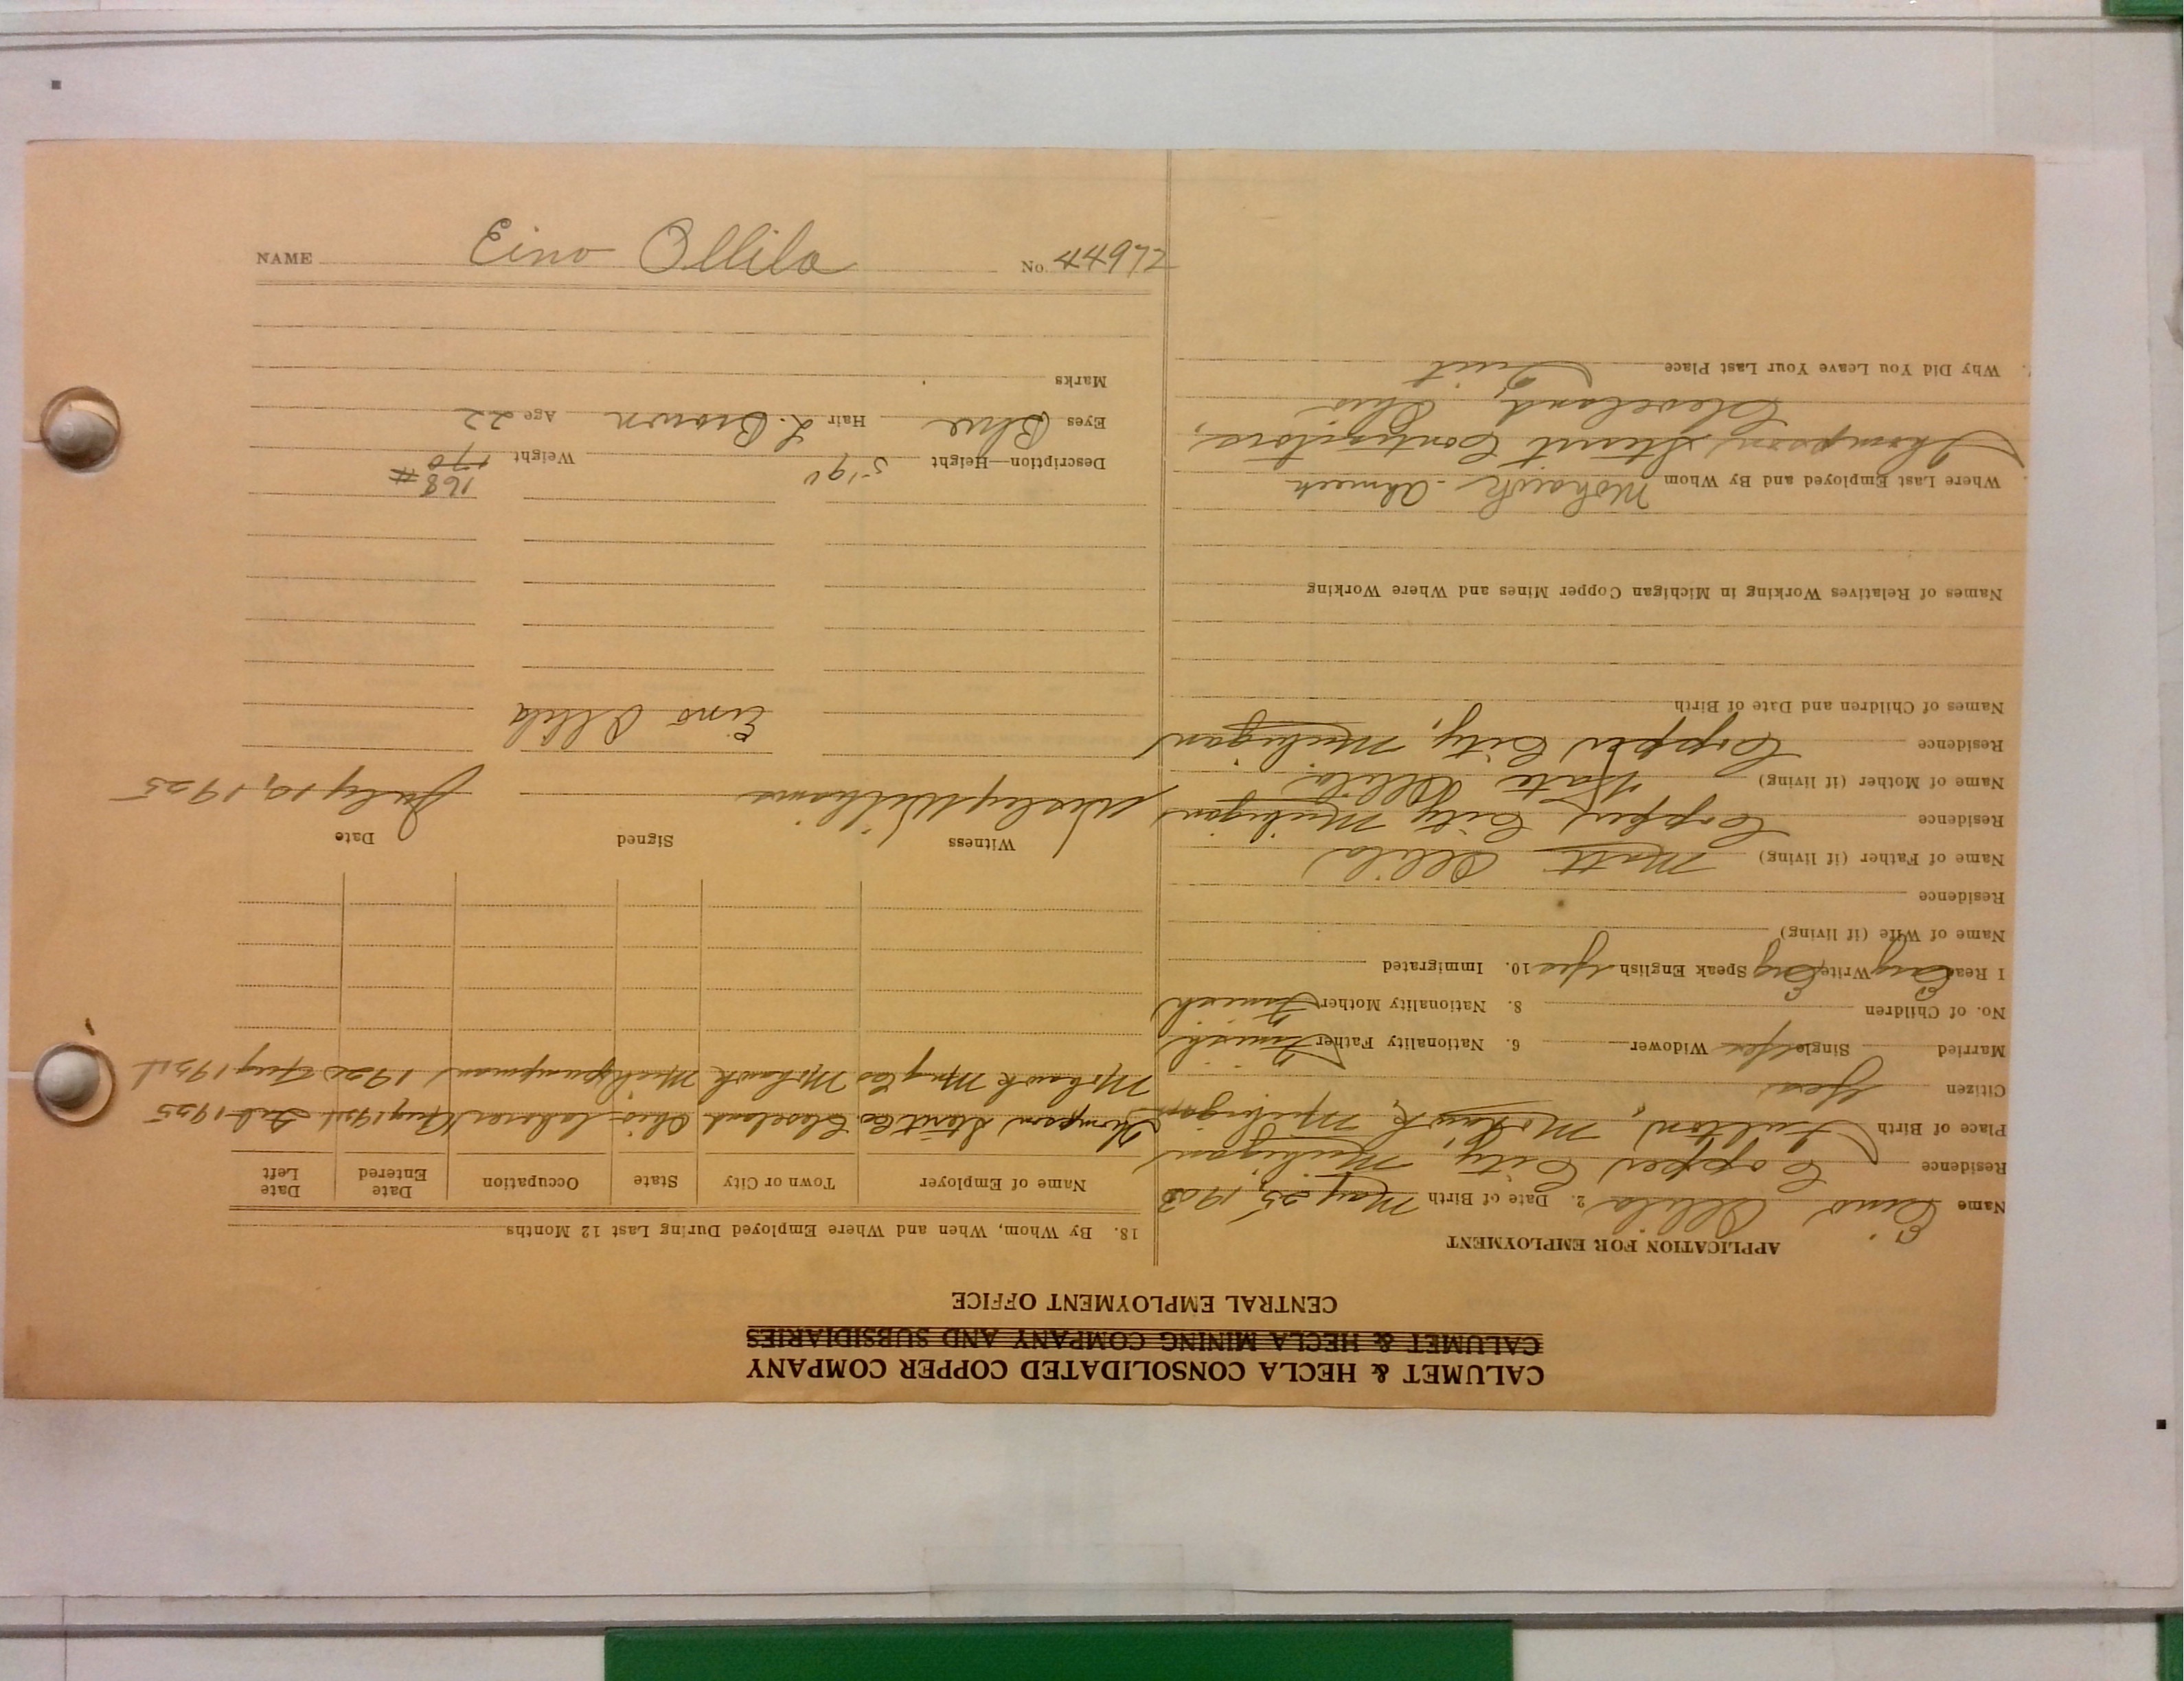 NAME Eino Ollila No. 44972
CALUMET & HECLA CONSOLIDATED COPPER COMPANY
CALUMET & HECLA MINING COMPANY AND SUBSIDIARIES
CENTRAL EMPLOYMENT OFFICE
APPLICATION FOR EMPLOYMENT
Name Eino Ollila 2. Date of Birth May 25, 1903
Residence Copper City, Michigan
Place of Birth Fulton, Mohawk, Michigan
Citizen Yes
Married Single Yes Widower 6. Nationality Father Finnish
No. of Children 8. Nationality Mother Finnish
I Read Eng Write Eng Speak English Yes 10. Immigrated
Name of Wife (if living)
Residence
Name of Father (if living) Matt Ollila
Residence Copper City Michigan
Name of Mother (if living) Kate Ollila
Residence Copper City, Michigan
Names of Children and Date of Birth
Names of Relatives Working in Michigan Copper Mines and Where Working
Where Last Employed and By Whom Mohawk - Ahmeek
Thompson Starrit Contractors,
Cleveland, Ohio
Why Did You Leave Your Last Place Quit
18. By Whom, When and Where Employed During Last 12 Months
Name of Employer Town or City State Occupation Date Entered Date Left
Thompson Starit Co. Cleveland Ohio laborer Aug 1924 Feb 1925
Mohawk Mng Co Mohawk Mich pumpman 1920 Aug 1924
Witness Signed Date
Wesley Williams July 19, 1925
Eino Ollila
168 #
Description—Height 5' 9" Weight 170
Eyes Blue Hair L. Brown Age 22
Marks